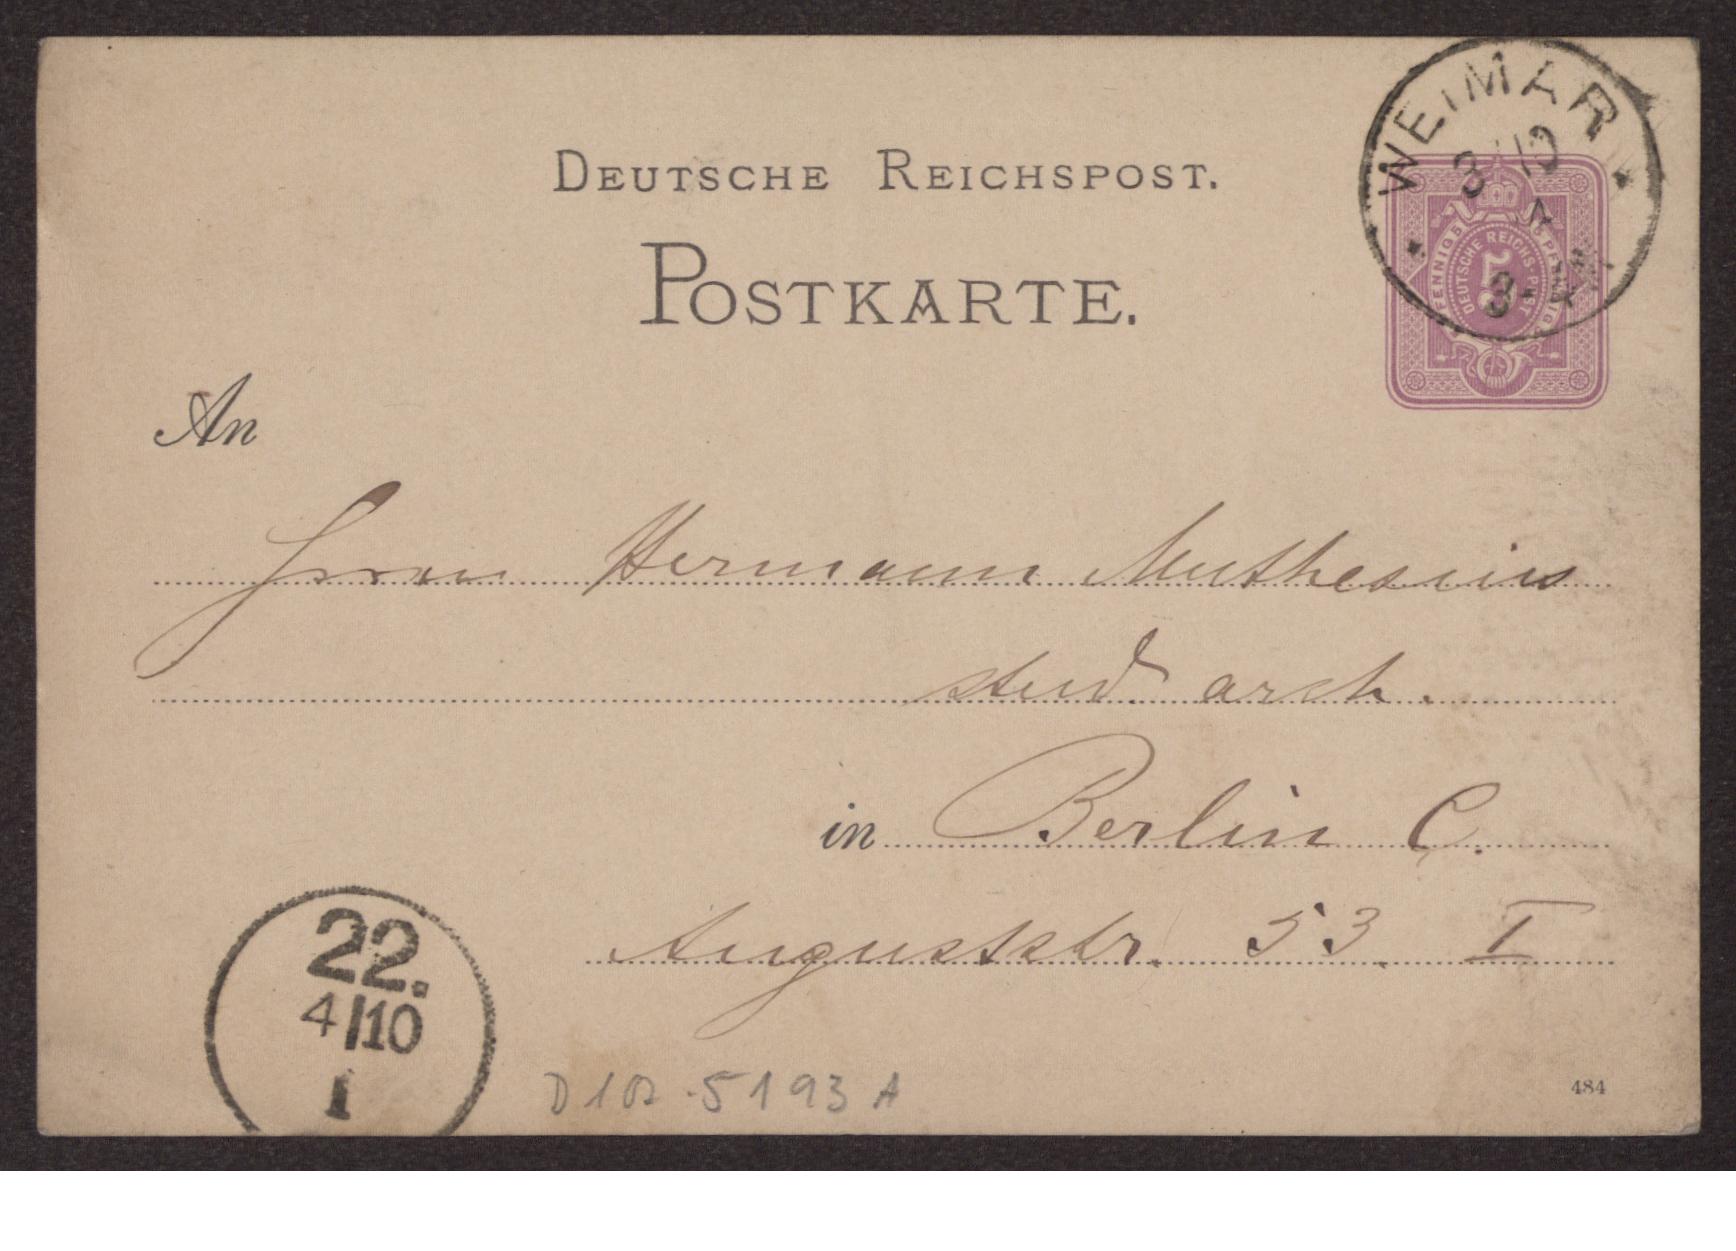 WEIMAR
3 10
8-
DEUTSCHE REICHSPOST.
PFENNIG 5
5 PFENNIG
DEUTSCHE REICHS-POST
5
POSTKARTE.
An
Herrn Hermann Muthesius
stud arch.
in Berlin C.
Auguststr. 53. I
22.
4/10
1
5193 A
484